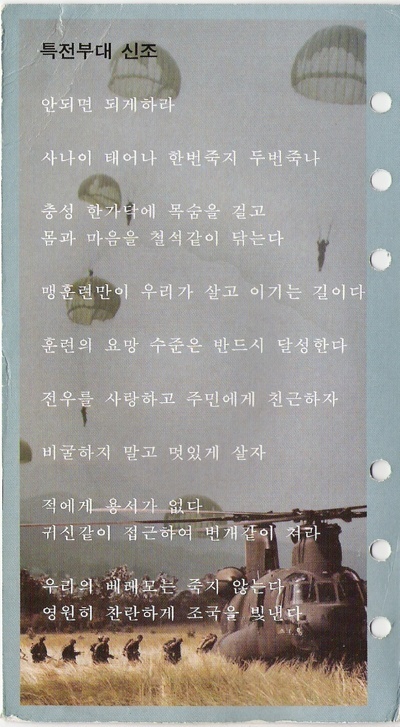 특전부대 신조
안되면 되게하라
사나이 태어나 한번죽지 두번죽나
충성 한가닥에 목숨을 걸고
몸과 마음을 철석같이 닦는다
맹훈련만이 우리가 살고 이기는 길이다
훈련의 요망 수준은 반드시 달성한다
전우를 사랑하고 주민에게 친근하자
비굴하지 말고 멋있게 살자
적에게 용서가 없다
귀신같이 접근하여 번개같이 쳐라
우리의 베레모는 죽지 않는다
영원히 찬란하게 조국을 빛낸다